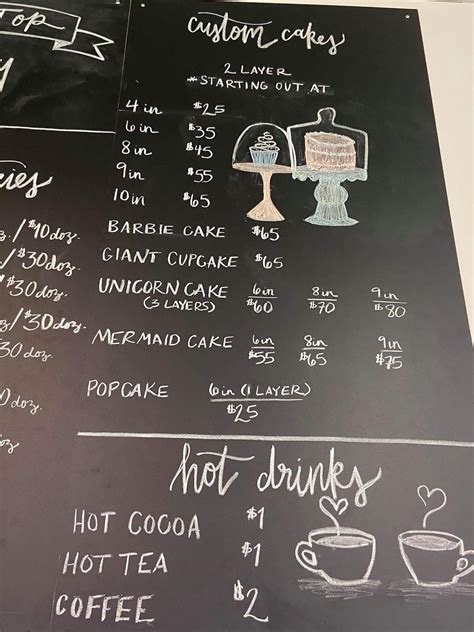 TOP
y
cies
z. / $10 doz.
/ $30 doz.
$30 doz.
z / $30 doz.
30 doz.
0 doz.
oz
custom cakes
2 LAYER
*STARTING OUT AT
4 in $25
6 in $35
8 in $45
9 in $55
10 in $65
BARBIE CAKE $65
GIANT CUPCAKE $65
UNICORN CAKE 6in 8in 9in
(3 LAYERS) $60 $70 $80
MERMAID CAKE 6in 8in 9in
$55 $65 $75
POPCAKE 6in (1 LAYER)
$25
hot drinks
HOT COCOA $1
HOT TEA $1
COFFEE $2